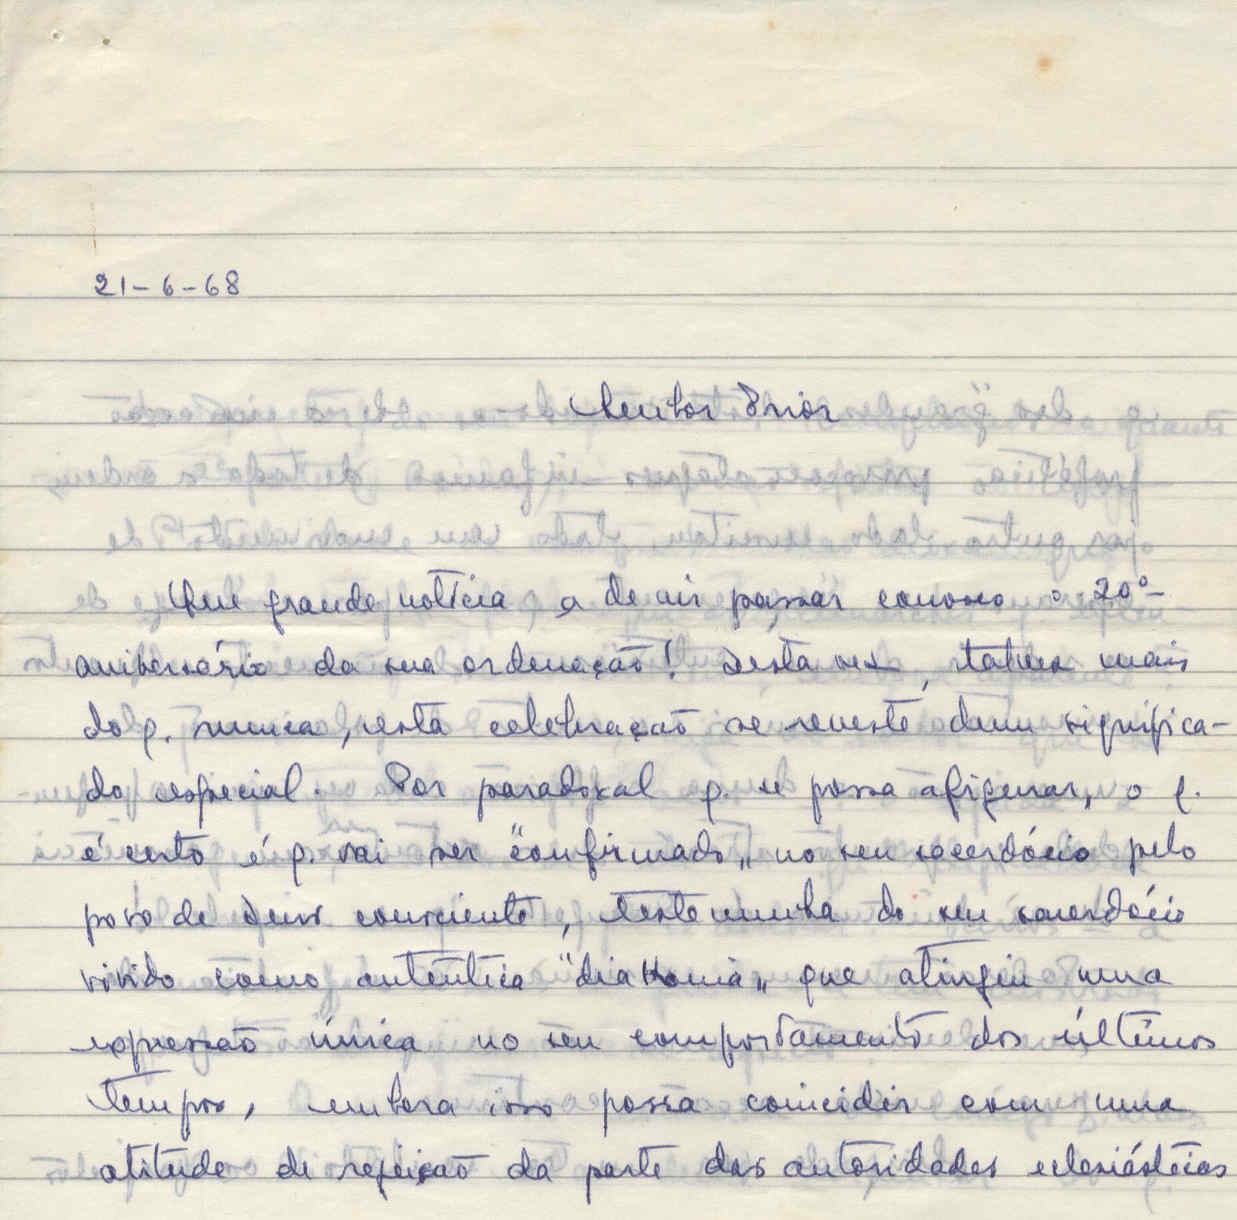 21-6-68
Senhor Prior
Que grande notícia, a de vir passar conosco o 20º
aniversário da sua ordenação! Desta vez, talvez mais
do q. nunca, esta celebração se reveste dum significa-
do especial. Por paradoxal q. se possa afigurar, o q.
é certo é q. vai ser "confirmado" no seu sacerdócio pelo
povo de Deus consciente, testemunha do seu sacerdócio
vivido como autêntica "diakonia" que atingiu uma
expressão única no seu comportamento dos últimos
tempos, embora isso possa coincidir com uma
atitude de rejeição da parte das autoridades eclesiásticas